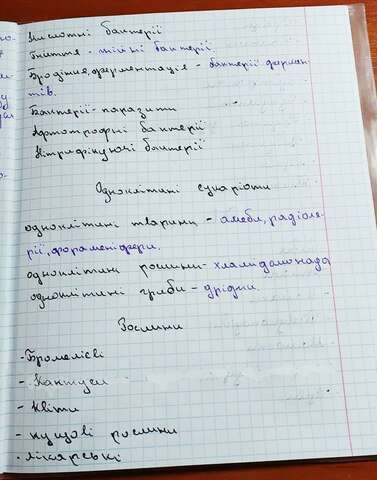 Кислотні бактерії
Гниття - гнійні бактерії.
Бродіння, ферментація - бактерії фермен
тів.
Бактерії - паразити
Автотрофні бактерії
Нітрифікуючі бактерії
Одноклітині еукаріоти
одноклітині тварини - амеби, радіоля-
рії, фораменіфери.
одноклітині рослини - хламідомонада
одноклітині гриби - дріджі.
Рослини
- Бромелієві
- Кактуси
- Квіти
- кущові рослини
- лікарські